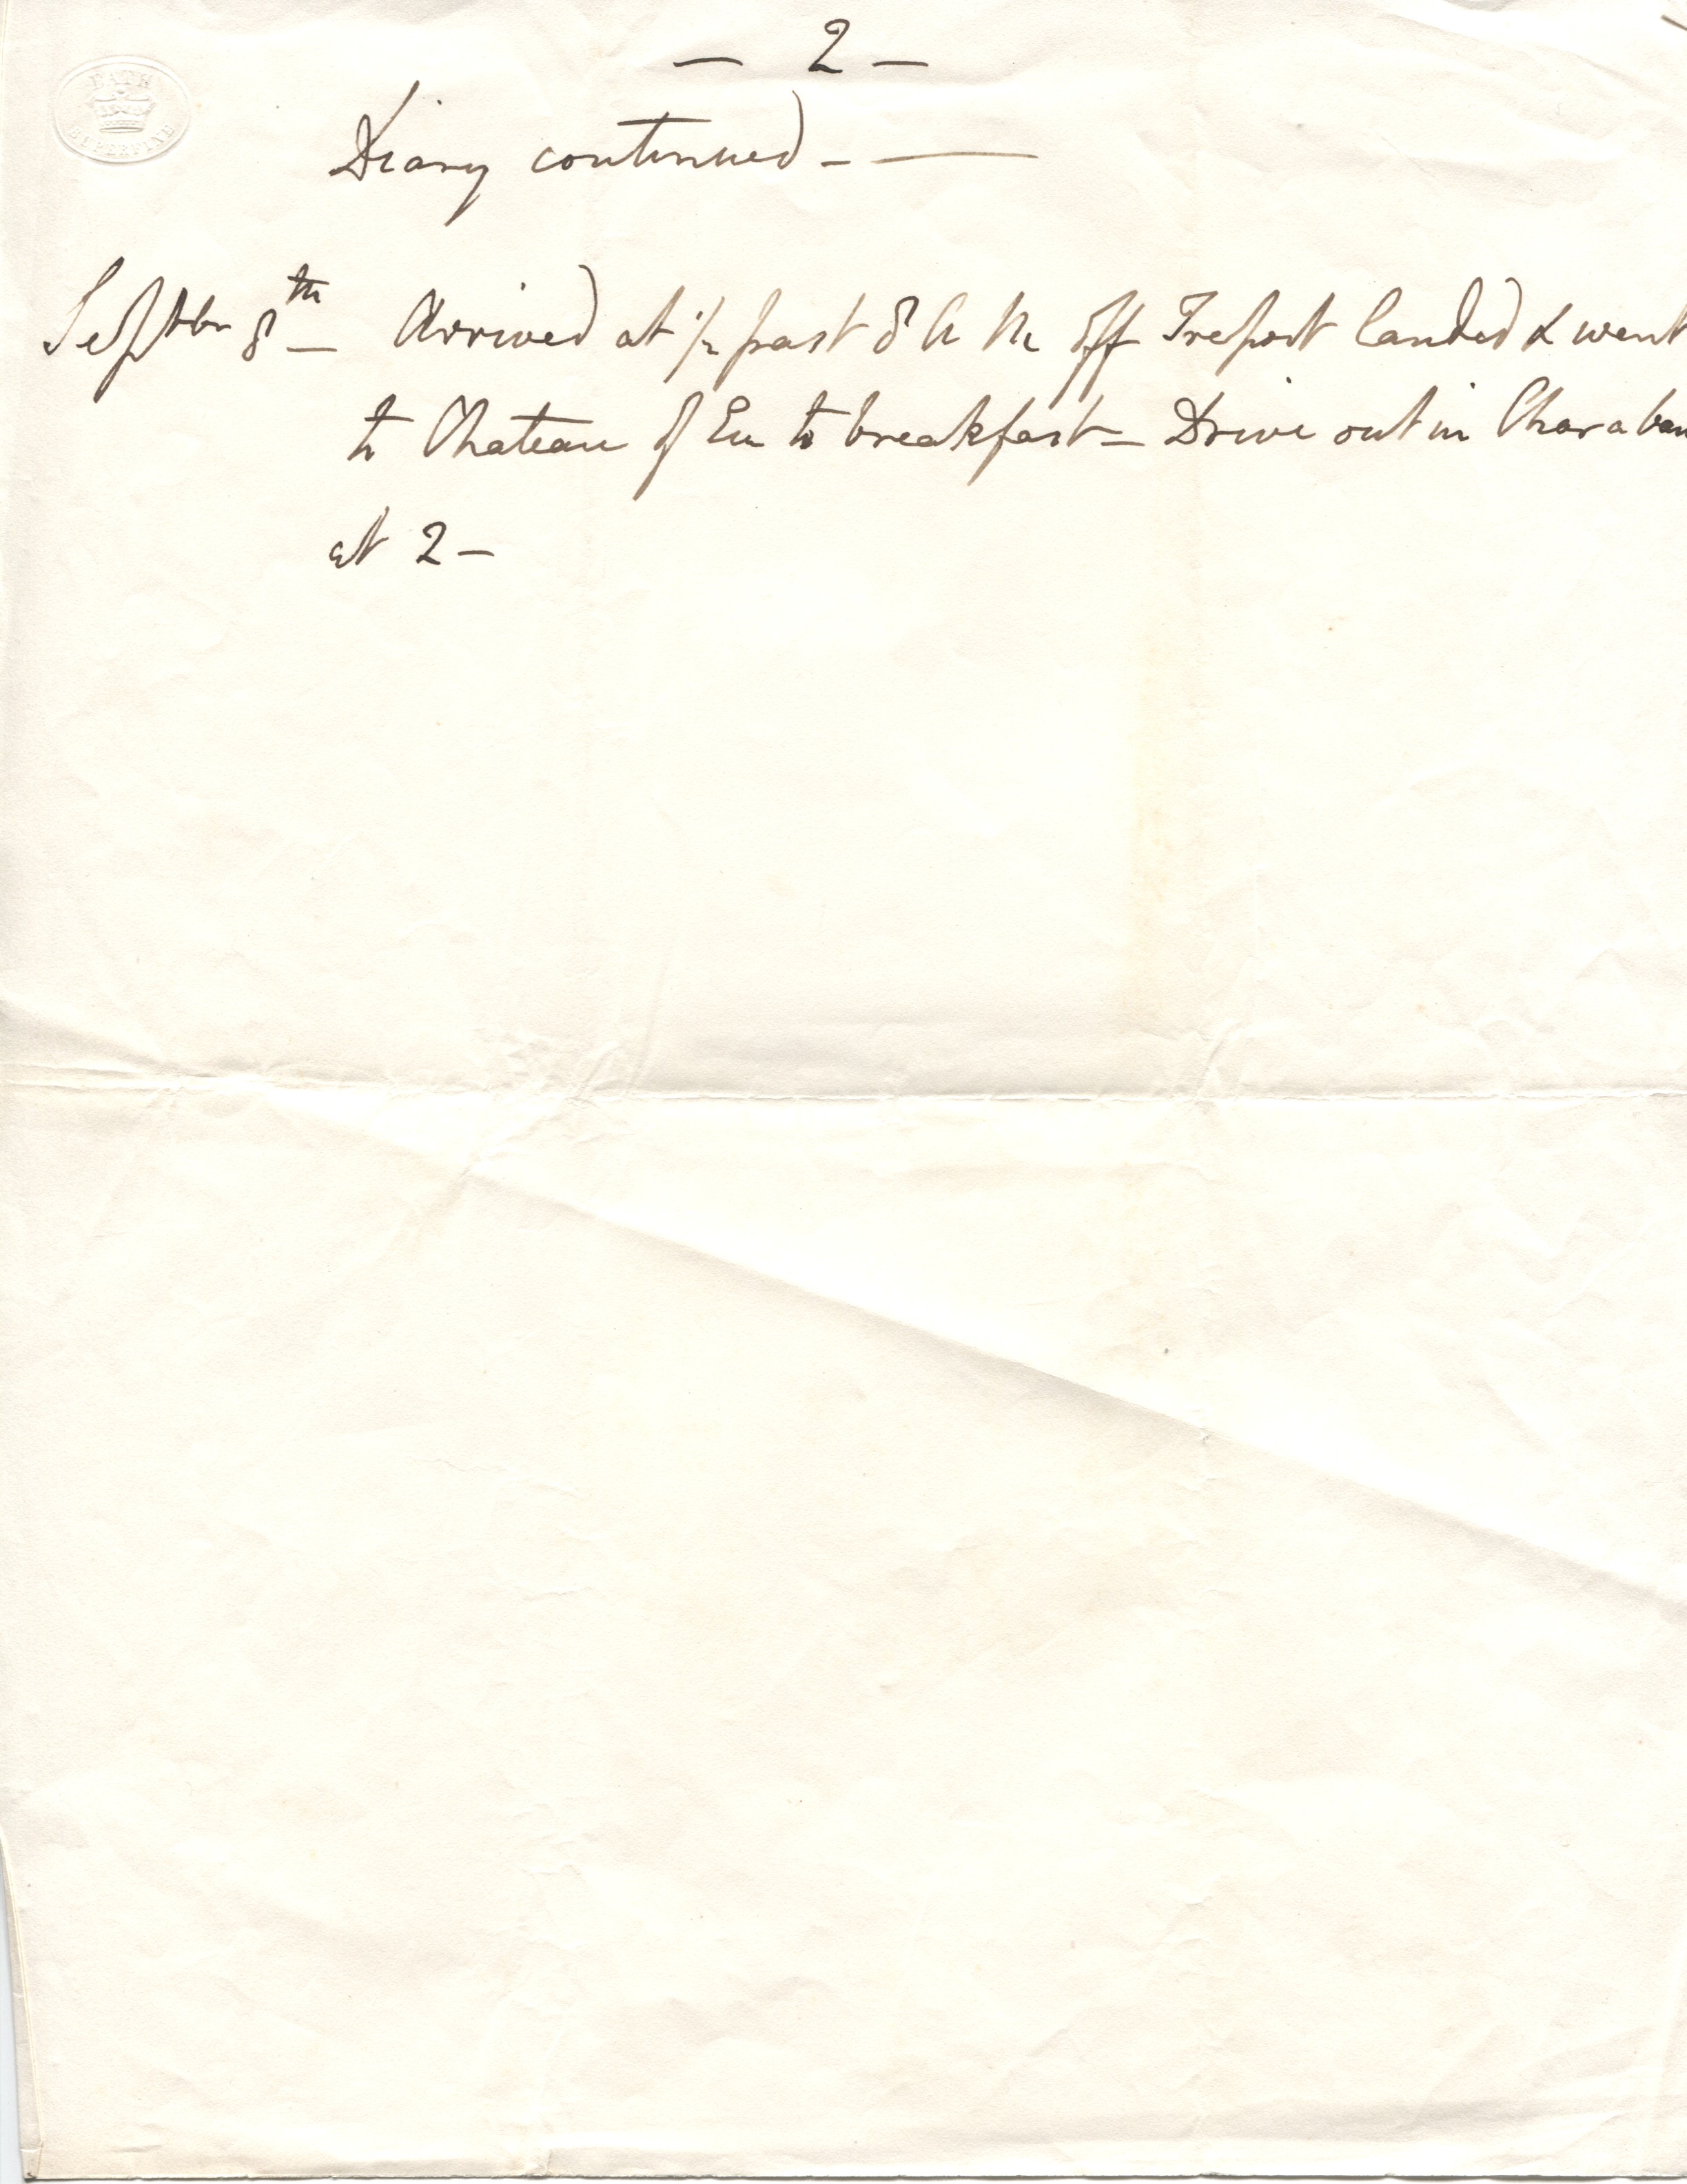 BATH
SUPERFINE
— 2 —
Diary continued - —
Septbr 8th — Arrived at 1/2 past 8 A M off Treport landed & went
to Chateau of Eu to breakfast — Drive out in Charaban
at 2 —